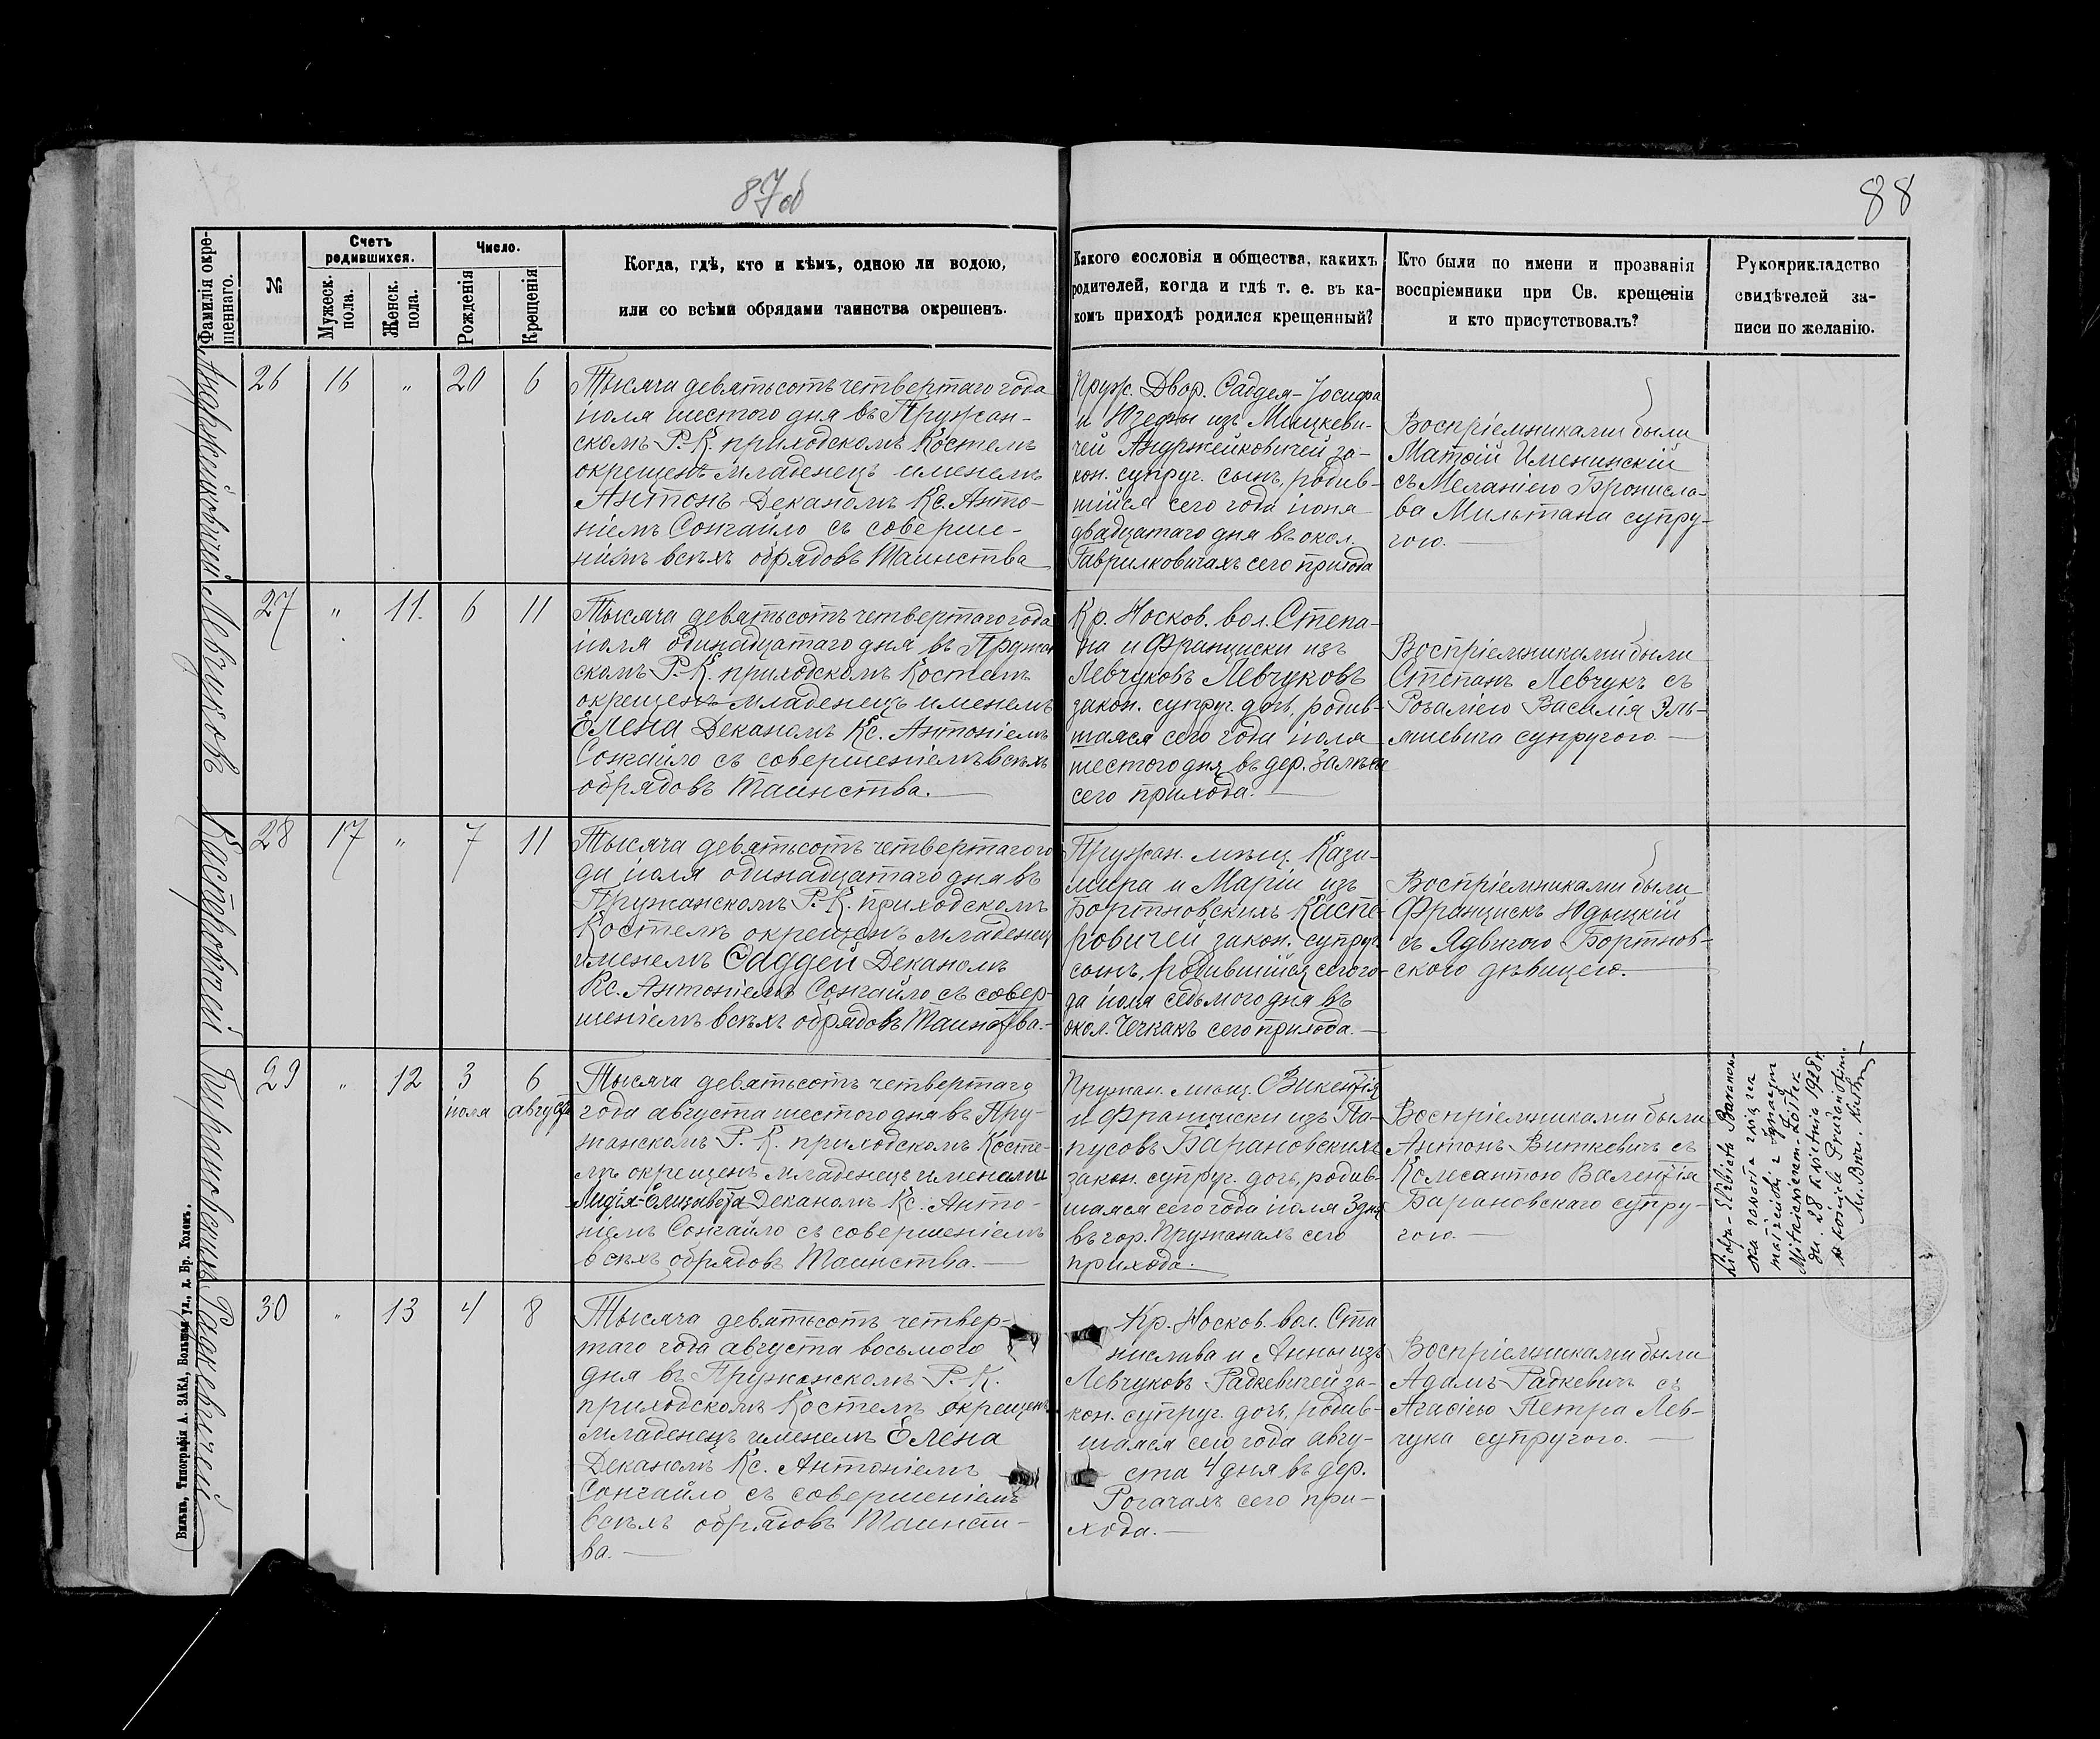 87об
88
Фамилія окре-
щеннаго.
№
Счетъ
родившихся.
Мужеск.
пола.
Женск.
пола.
Число.
Рожденія
Крещенія
Когда, гдѣ, кто и кѣмъ, одною ли водою,
или со всѣми обрядами таинства окрещенъ.
Какого сословія и общества, какихъ
родителей, когда и гдѣ т. е. въ ка-
комъ приходѣ родился крещенный?
Кто были по имени и прозванія
воспріемники при Св. крещеніи
и кто присутствовалъ?
Рукоприкладство
свидѣтелей за-
писи по желанію.
Андржейковичей
26 16 " 20 6
Тысяча девятьсотъ четвертаго года
іюля шестого дня въ Пружан-
скомъ Р.-К. приходскомъ Костелѣ
окрещенъ младенецъ именемъ
Антонъ Деканомъ Кс. Анто-
ніемъ Сонгайло съ соверше-
ніемъ всѣхъ обрядовъ Таинства
Пруж. Двор. Фаддея-Іосифа
и Юзефы изъ Мицкеви-
чей Андржейковичей за-
кон. супруг. сынъ, родив-
шійся сего года іюня
двадцатаго дня въ окол.
Гаврилковичахъ сего прихода
Воспріемниками были
Матѳій Именинскій
съ Меланіею Бронисла-
ва Мильтана супру-
гою.
Левчуковъ
27 " 11. 6 11
Тысяча девятьсотъ четвертаго года
іюля одинадцатаго дня въ Пружан
скомъ Р.-К. приходскомъ Костелѣ
окрещенъ младенецъ именемъ
Елена Деканомъ Кс. Антоніемъ
Сонгайло съ совершеніемъ всѣхъ
обрядовъ Таинства.
Кр. Носков. вол. Степа-
на и Франциски изъ
Левчуковъ Левчуковъ
закон. супруг. дочь, родив-
шаяся сего года іюля
шестого дня въ дер. Залѣсье
сего прихода.
Воспріемниками были
Степанъ Левчукъ съ
Розаліею Василія Эль-
яшевича супругою.
Касперовичей
28 17 " 7 11
Тысяча девятьсотъ четвертаго го
да іюля одинадцатаго дня въ
Пружанскомъ Р.-К. приходскомъ
Костелѣ окрещенъ младенецъ
именемъ Фаддей Деканомъ
Кс. Антоніемъ Сонгайло съ совер-
шеніемъ всѣхъ обрядовъ Таинства.
Пружан. мѣщ. Кази-
мира и Маріи изъ
Бортновскихъ Каспе-
ровичей закон. супруг.
сынъ, родившійся сего го-
да іюля седьмого дня въ
окол. Чечкахъ сего прихода.
Воспріемниками были
Францискъ Юдыцкій
съ Ядвигою Бортнов-
скою дѣвицею.
Барановскихъ
29 " 12 3 6
іюля августа
Тысяча девятьсотъ четвертаго
года августа шестого дня въ Пру-
жанскомъ Р. К. приходскомъ Косте-
лѣ окрещенъ младенецъ именами
Лидія-Елизавета Деканомъ Кс. Анто-
ніемъ Сонгайло съ совершеніемъ
всѣхъ обрядовъ Таинства.
Пружан. мѣщ. Викентія
и Франциски изъ Па-
пусовъ Барановскихъ
закон. супруг. дочь, родив-
шаяся сего года іюля 3 дня
въ гор. Пружанахъ сего
прихода.
Воспріемниками были
Антонъ Виткевичъ съ
Констанціею Валентія
Барановскаго супру-
гою.
Lidja-Elżbieta Baranow-
ska zawarła związek
małżeński z Ignacym
dn. 28 kwietnia 1928 r.
w kościele Prużańskim.
Радкевичей
30 " 13 4 8
Тысяча девятьсотъ четвер-
таго года августа восьмого
дня въ Пружанскомъ Р.-К.
приходскомъ Костелѣ окрещенъ
младенецъ именемъ Елена
Деканомъ Кс. Антоніемъ
Сонгайло съ совершеніемъ
всѣхъ обрядовъ Таинст-
ва.
Кр. Носков. вол. Ста
нислава и Анны изъ
Левчуковъ Радкевичей за-
кон. супруг. дочь, родив-
шаяся сего года авгу-
ста 4 дня въ дер.
Рогачахъ сего при-
хода.
Воспріемниками были
Адамъ Радкевичъ съ
Агасіею Петра Лев-
чука супругою.
Вильна, Типографія А. ЗАКА, Большая ул., д. Бр. Холемъ.